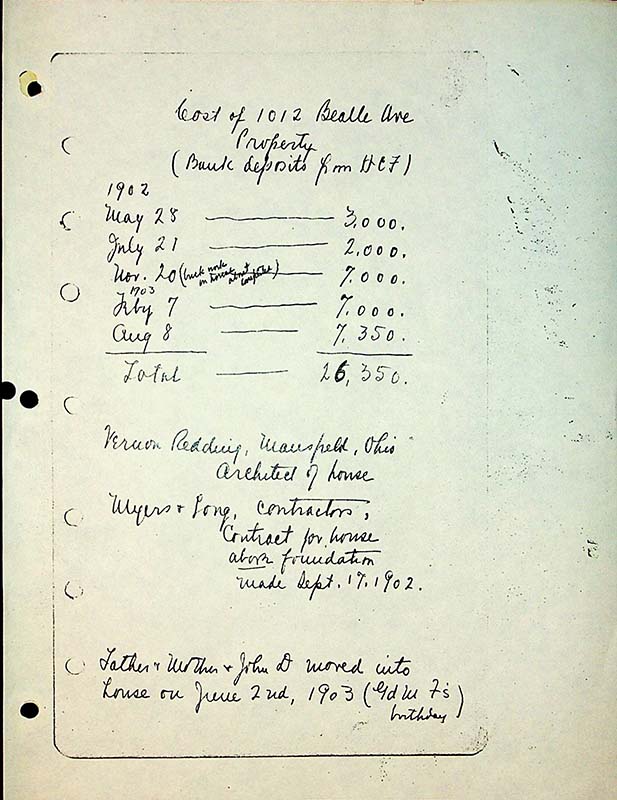 Cost of 1012 Bealle Ave
Property
(Bank deposits from HCF)
1902
May 28 3,000.
July 21 2,000.
Nov. 20 (brick work on house about completed) 7,000.
1903
Feby 7 7,000.
Aug 8 7,350.
Total 26,350.
Vernon Redding, Mansfield, Ohio
Architect of house
Myers & Long, contractors,
Contract for house
above foundation
made Sept. 17, 1902.
Father & Mother & John D moved into
house on June 2nd, 1903 (Gd M F's
birthday)